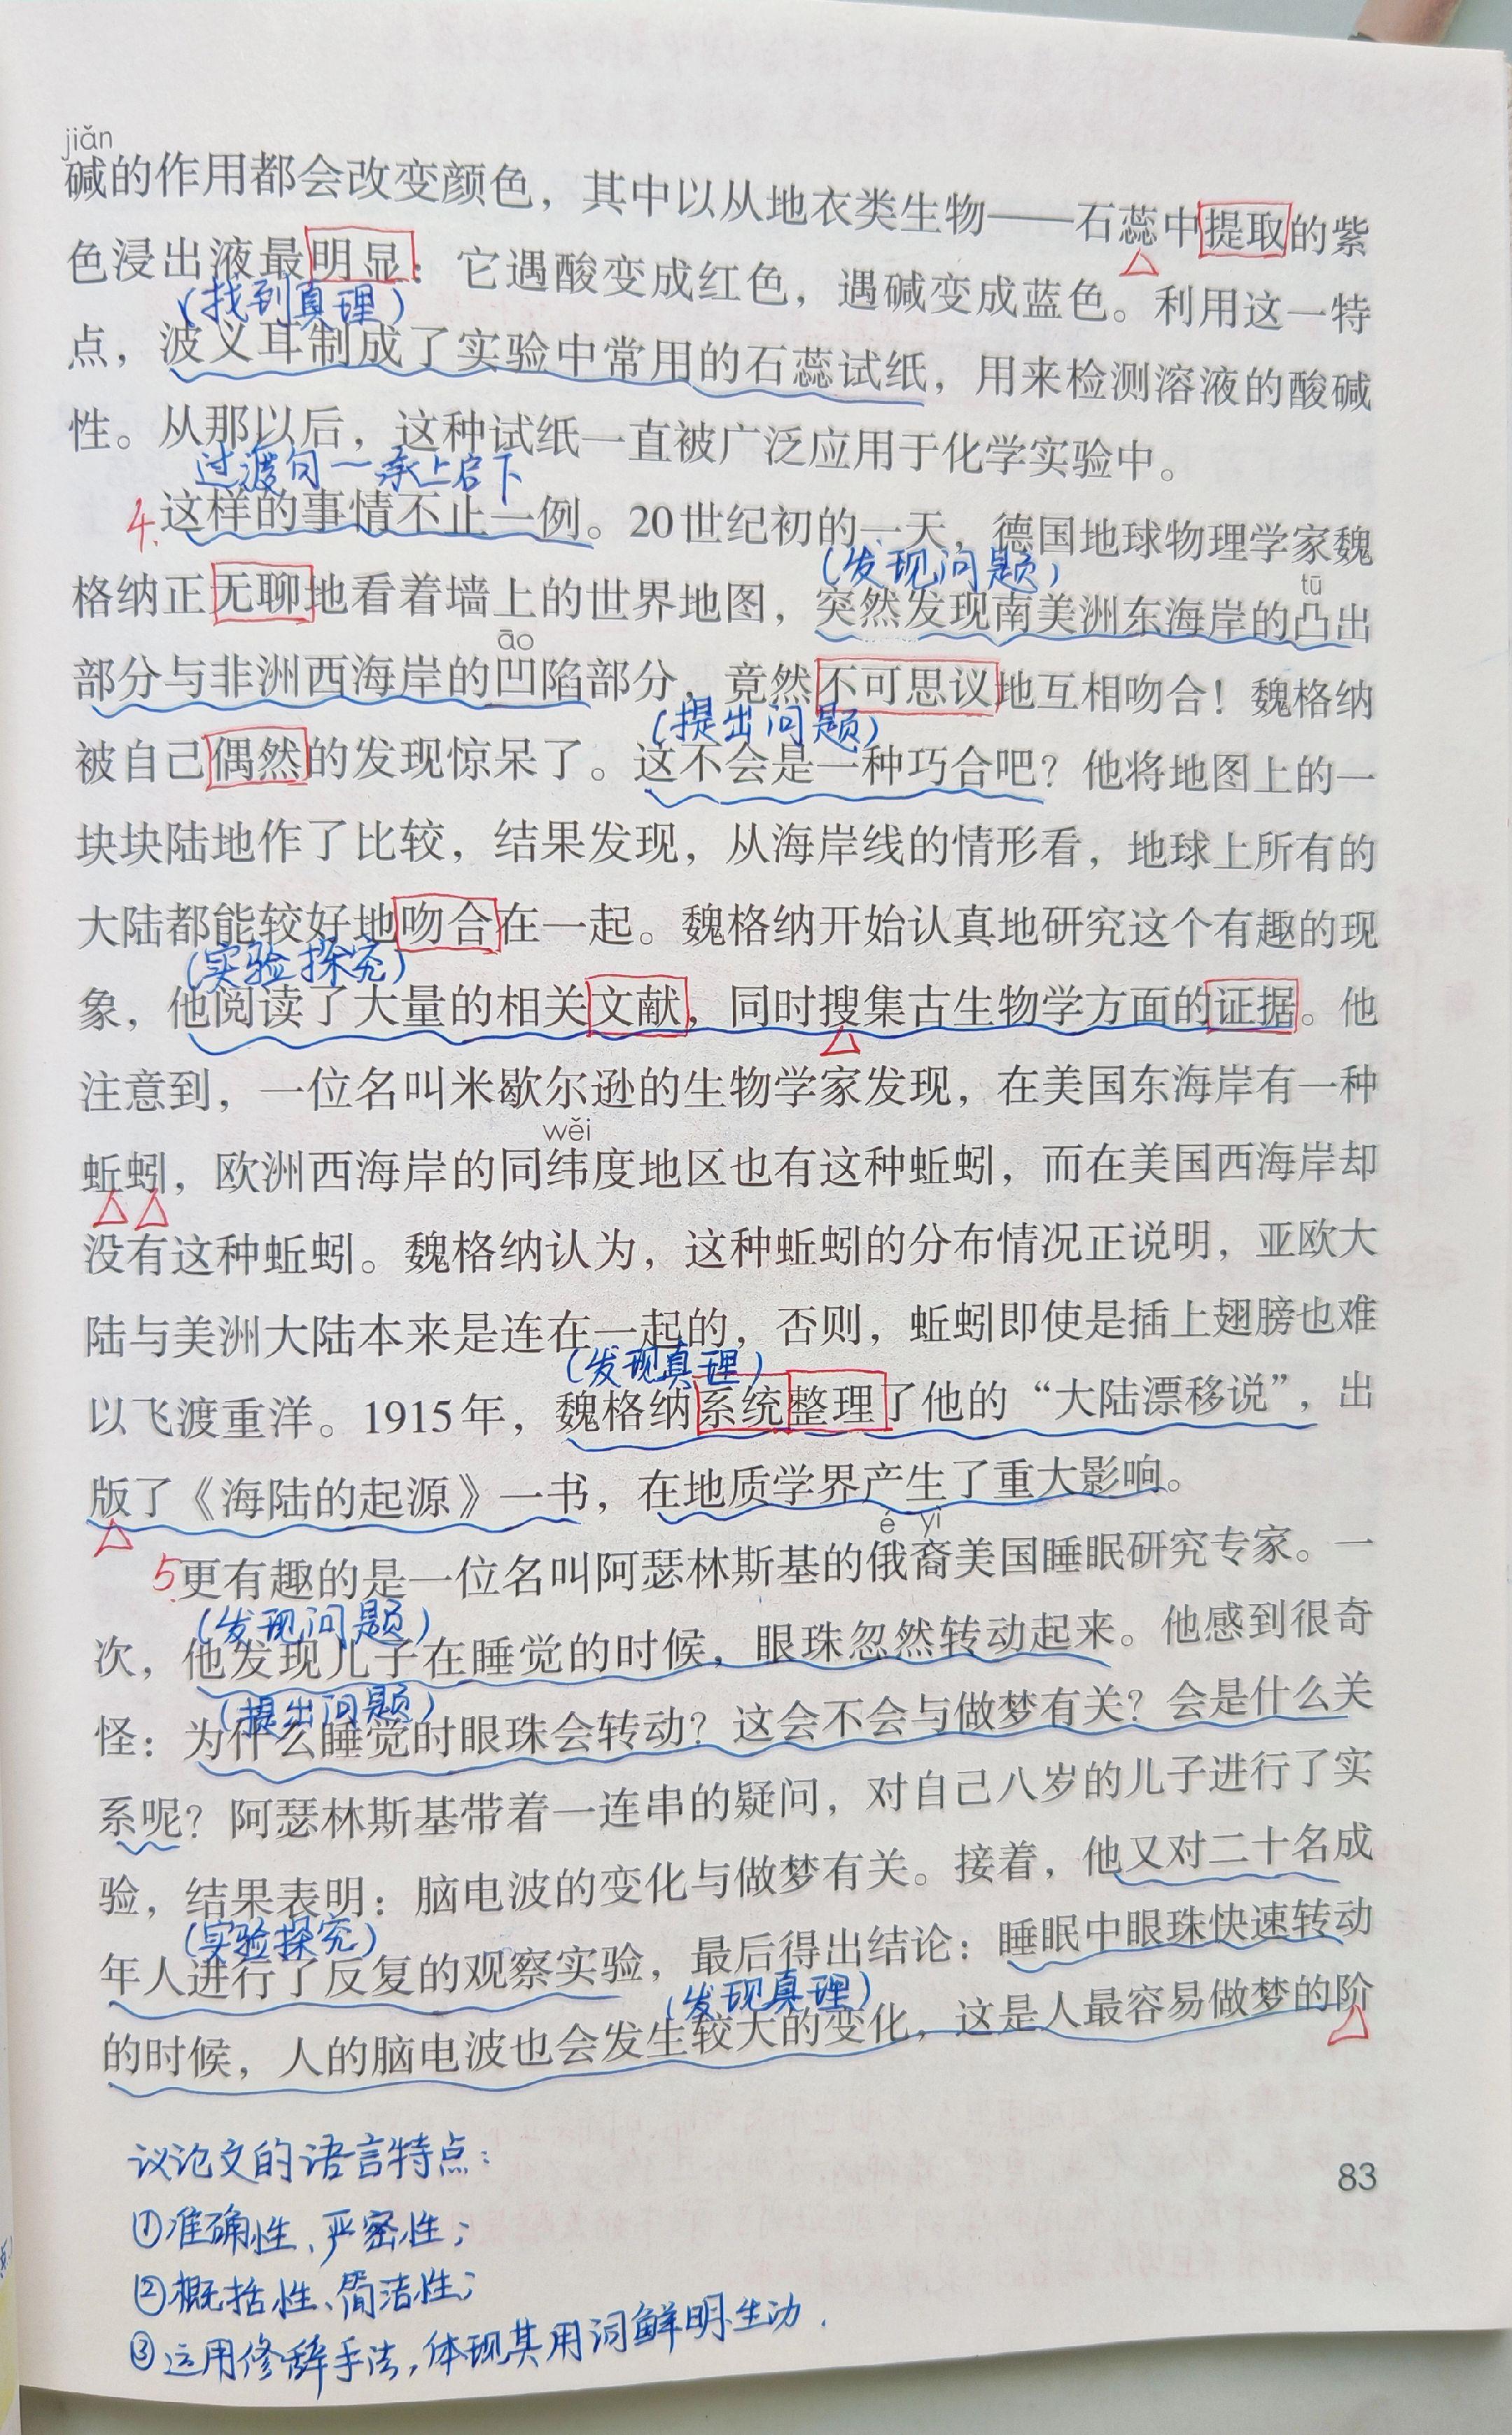 jiǎn
碱的作用都会改变颜色，其中以从地衣类生物——石蕊中提取的紫
色浸出液最明显：它遇酸变成红色，遇碱变成蓝色。利用这一特
（找到真理）
点，波义耳制成了实验中常用的石蕊试纸，用来检测溶液的酸碱
性。从那以后，这种试纸一直被广泛应用于化学实验中。
过渡句—承上启下
4.这样的事情不止一例。20世纪初的一天，德国地球物理学家魏
（发现问题）
tū
格纳正无聊地看着墙上的世界地图，突然发现南美洲东海岸的凸出
āo
部分与非洲西海岸的凹陷部分，竟然不可思议地互相吻合！魏格纳
（提出问题）
被自己偶然的发现惊呆了。这不会是一种巧合吧？他将地图上的一
块块陆地作了比较，结果发现，从海岸线的情形看，地球上所有的
大陆都能较好地吻合在一起。魏格纳开始认真地研究这个有趣的现
（实验探究）
象，他阅读了大量的相关文献，同时搜集古生物学方面的证据。他
注意到，一位名叫米歇尔逊的生物学家发现，在美国东海岸有一种
wěi
蚯蚓，欧洲西海岸的同纬度地区也有这种蚯蚓，而在美国西海岸却
没有这种蚯蚓。魏格纳认为，这种蚯蚓的分布情况正说明，亚欧大
陆与美洲大陆本来是连在一起的，否则，蚯蚓即使是插上翅膀也难
（发现真理）
以飞渡重洋。1915年，魏格纳系统整理了他的“大陆漂移说”，出
版了《海陆的起源》一书，在地质学界产生了重大影响。
é yì
5.更有趣的是一位名叫阿瑟林斯基的俄裔美国睡眠研究专家。一
（发现问题）
次，他发现儿子在睡觉的时候，眼珠忽然转动起来。他感到很奇
（提出问题）
怪：为什么睡觉时眼珠会转动？这会不会与做梦有关？会是什么关
系呢？阿瑟林斯基带着一连串的疑问，对自己八岁的儿子进行了实
验，结果表明：脑电波的变化与做梦有关。接着，他又对二十名成
（实验探究）
年人进行了反复的观察实验，最后得出结论：睡眠中眼珠快速转动
（发现真理）
的时候，人的脑电波也会发生较大的变化，这是人最容易做梦的阶
议论文的语言特点：
83
①准确性、严密性；
②概括性、简洁性；
③运用修辞手法，体现其用词鲜明、生动.